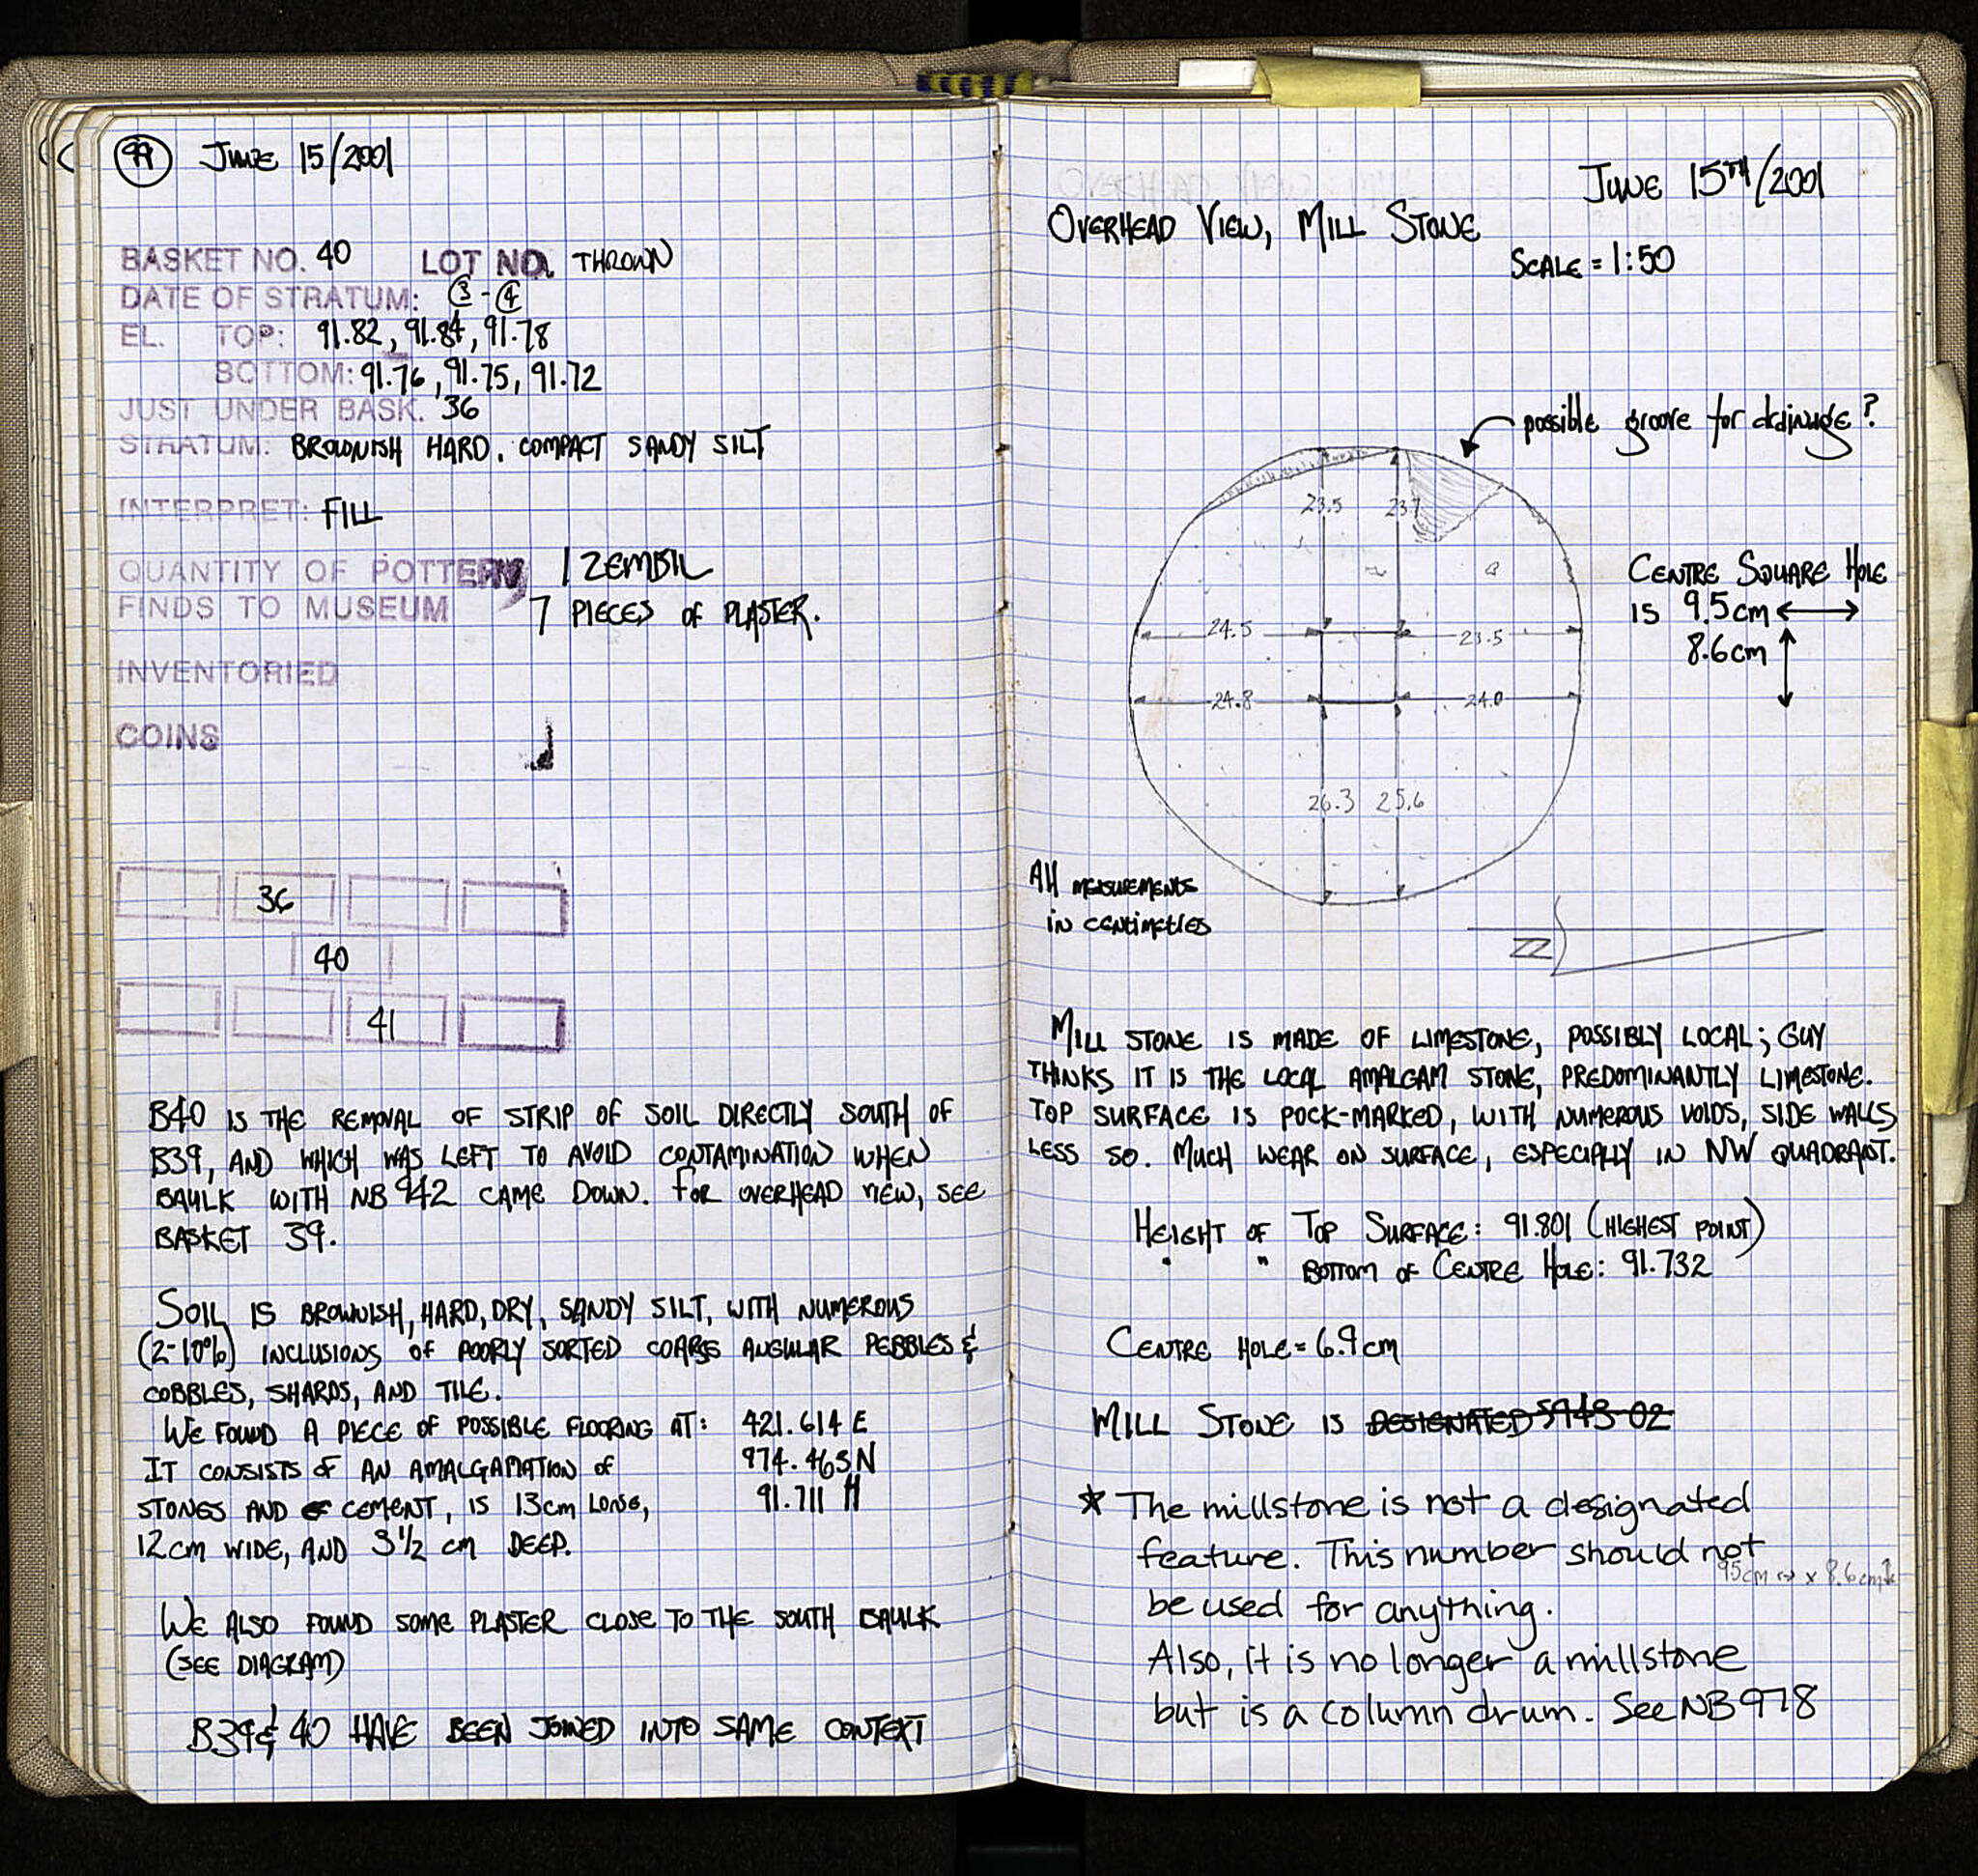 99 JUNE 15/2001
BASKET NO. 40 LOT NO. THROWN
DATE OF STRATUM: 3 - 4
EL. TOP: 91.82, 91.84, 91.78
BOTTOM: 91.76, 91.75, 91.72
JUST UNDER BASK. 36
STRATUM: BROWNISH HARD, COMPACT SANDY SILT
INTERPRET: FILL
QUANTITY OF POTTERY 1 ZEMBIL
FINDS TO MUSEUM 7 PIECES OF PLASTER.
INVENTORIED
COINS
36
40
41
B40 IS THE REMOVAL OF STRIP OF SOIL DIRECTLY SOUTH OF
B39, AND WHICH WAS LEFT TO AVOID CONTAMINATION WHEN
BAULK WITH NB 942 CAME DOWN. FOR OVERHEAD VIEW, SEE
BASKET 39.
SOIL IS BROWNISH, HARD, DRY, SANDY SILT, WITH NUMEROUS
(2-10%) INCLUSIONS OF POORLY SORTED COARSE ANGULAR PEBBLES &
COBBLES, SHARDS, AND TILE.
WE FOUND A PIECE OF POSSIBLE FLOORING AT: 421.614 E
IT CONSISTS OF AN AMALGAMATION OF 974.463 N
STONES AND OF CEMENT, IS 13cm LONG, 91.711 H
12cm WIDE, AND 3 1/2 cm DEEP.
WE ALSO FOUND SOME PLASTER CLOSE TO THE SOUTH BAULK
(SEE DIAGRAM)
B39 & 40 HAVE BEEN JOINED INTO SAME CONTEXT
JUNE 15TH/2001
OVERHEAD VIEW, MILL STONE
SCALE = 1:50
possible groove for drainage?
23.5 23.7
CENTRE SQUARE HOLE
IS 9.5cm
8.6cm
24.5 23.5
24.8 24.0
26.3 25.6
All measurements
in centimetres
N
MILL STONE IS MADE OF LIMESTONE, POSSIBLY LOCAL; GUY
THINKS IT IS THE LOCAL AMALGAM STONE, PREDOMINANTLY LIMESTONE.
TOP SURFACE IS POCK-MARKED, WITH NUMEROUS VOIDS, SIDE WALLS
LESS SO. MUCH WEAR ON SURFACE, ESPECIALLY IN NW QUADRANT.
HEIGHT OF TOP SURFACE: 91.801 (HIGHEST POINT)
" " BOTTOM OF CENTRE HOLE: 91.732
CENTRE HOLE = 6.9cm
MILL STONE IS DESIGNATED 5943-02
* The millstone is not a designated
feature. This number should not
95cm x 8.6cm
be used for anything.
Also, it is no longer a millstone
but is a column drum. See NB 978